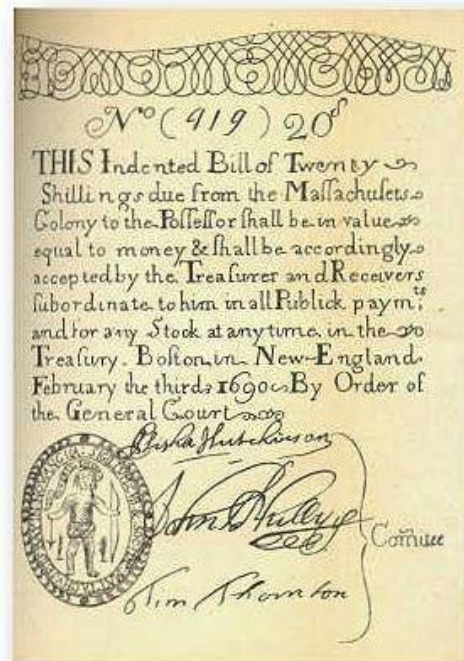 No (919) 20s
THIS Indented Bill of Twenty
Shillings due from the Maſſachuſets
Colony to the Poſſeſſor ſhall be in value
equal to money & ſhall be accordingly
accepted by the Treaſurer and Receivers
ſubordinate to him in all Publick paymts
and for any Stock at any time in the
Treaſury. Boſton in New-England
February the third 1690 By Order of
the General Court
Eliſha Hutchinson
John
Tim Thornton
Comitee